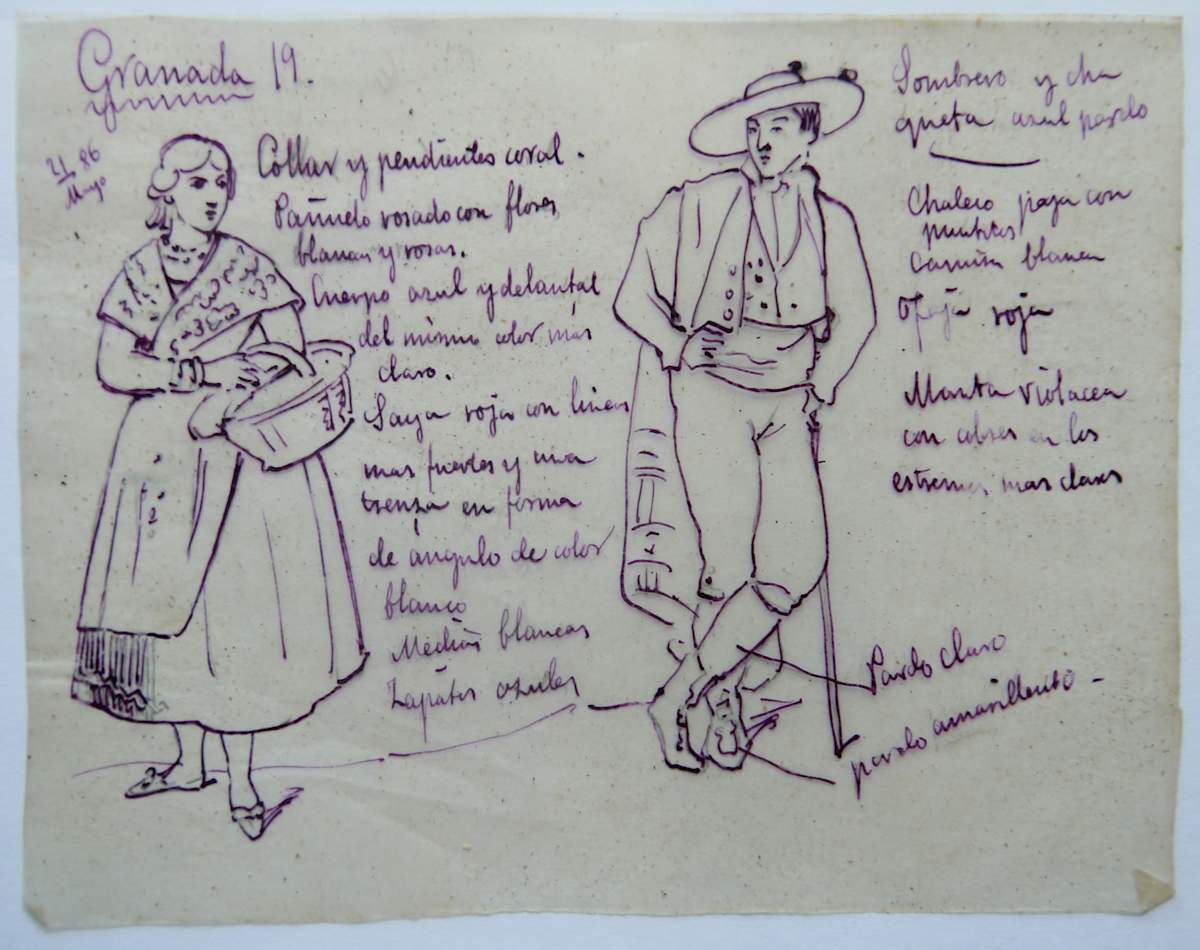 Granada 19.
21 86
Mayo
Collar y pendientes coral.
Pañuelo rosado con flores
blancas y rosas.
Cuerpo azul y delantal
del mismo color mas
claro.
Saya roja con lineas
mas fuertes y una
trenza en forma
de ángulo de color
blanco
Medias blancas
Zapatos azules
Sombrero y cha
queta azul pardo
Chaleco paja con
puntitos
camisa blanca
faja roja
Manta violacea
con colores en los
estremos mas claros
Pardo claro
pardo amarillento -